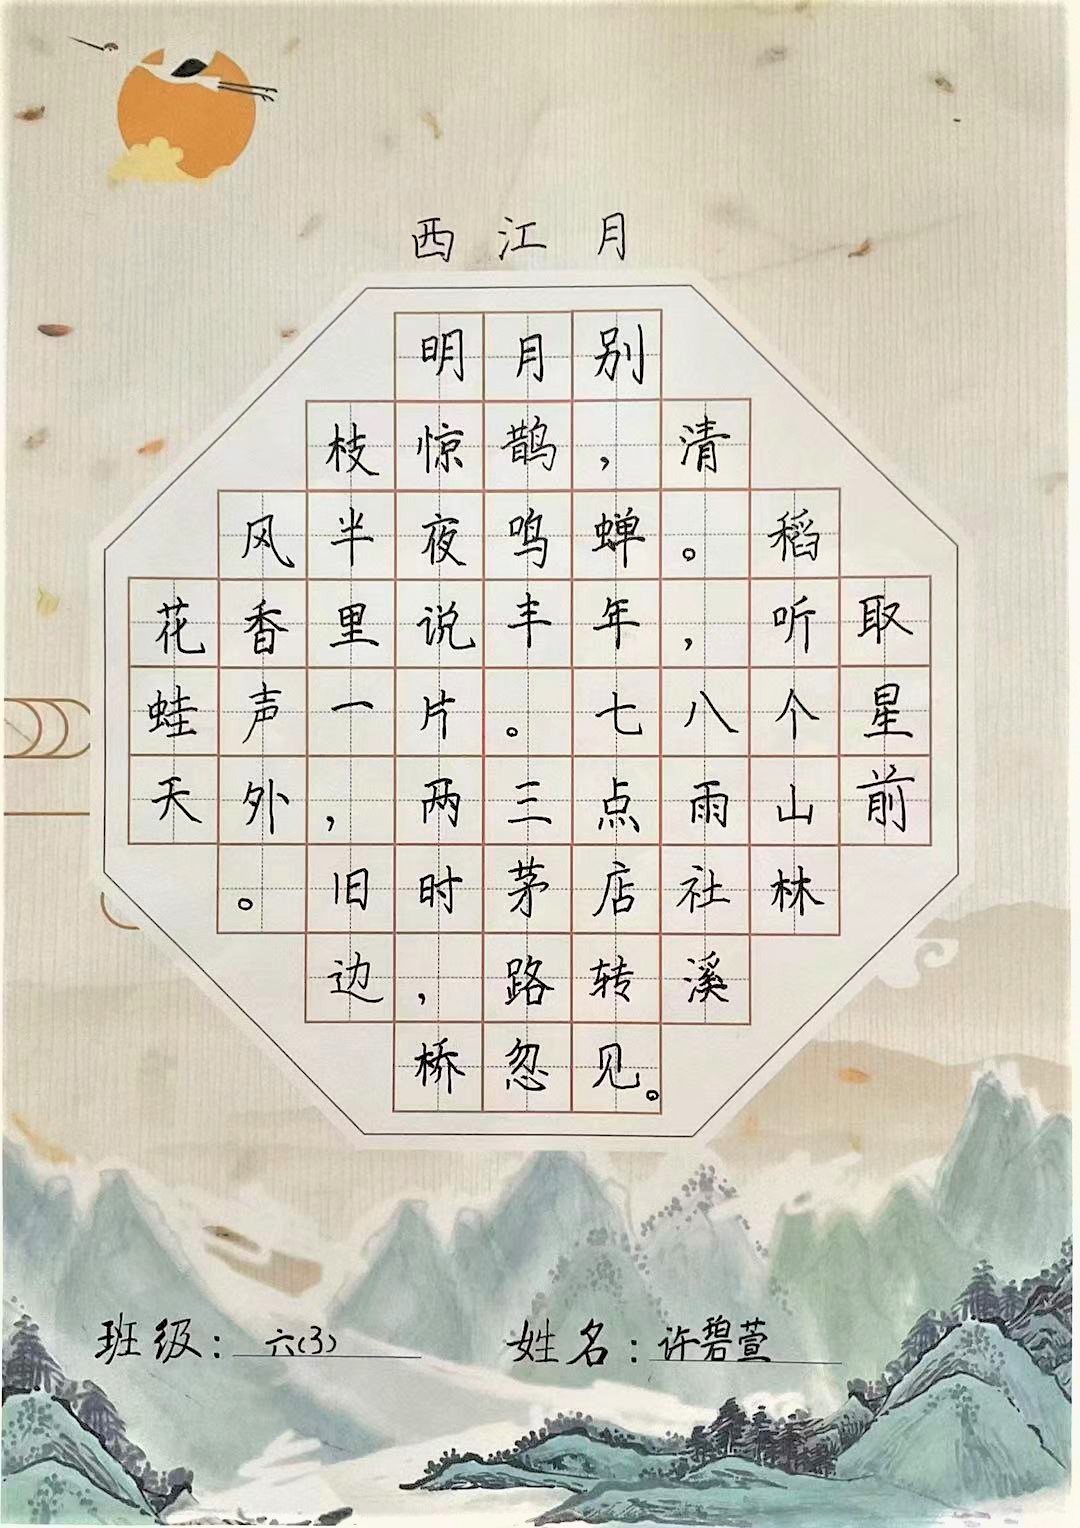 西江月
明月别
枝惊鹊，清
风半夜鸣蝉。稻
花香里说丰年，听取
蛙声一片。七八个星
天外，两三点雨山前
。旧时茅店社林
边，路转溪
桥忽见。
班级：六(3) 姓名：许碧萱